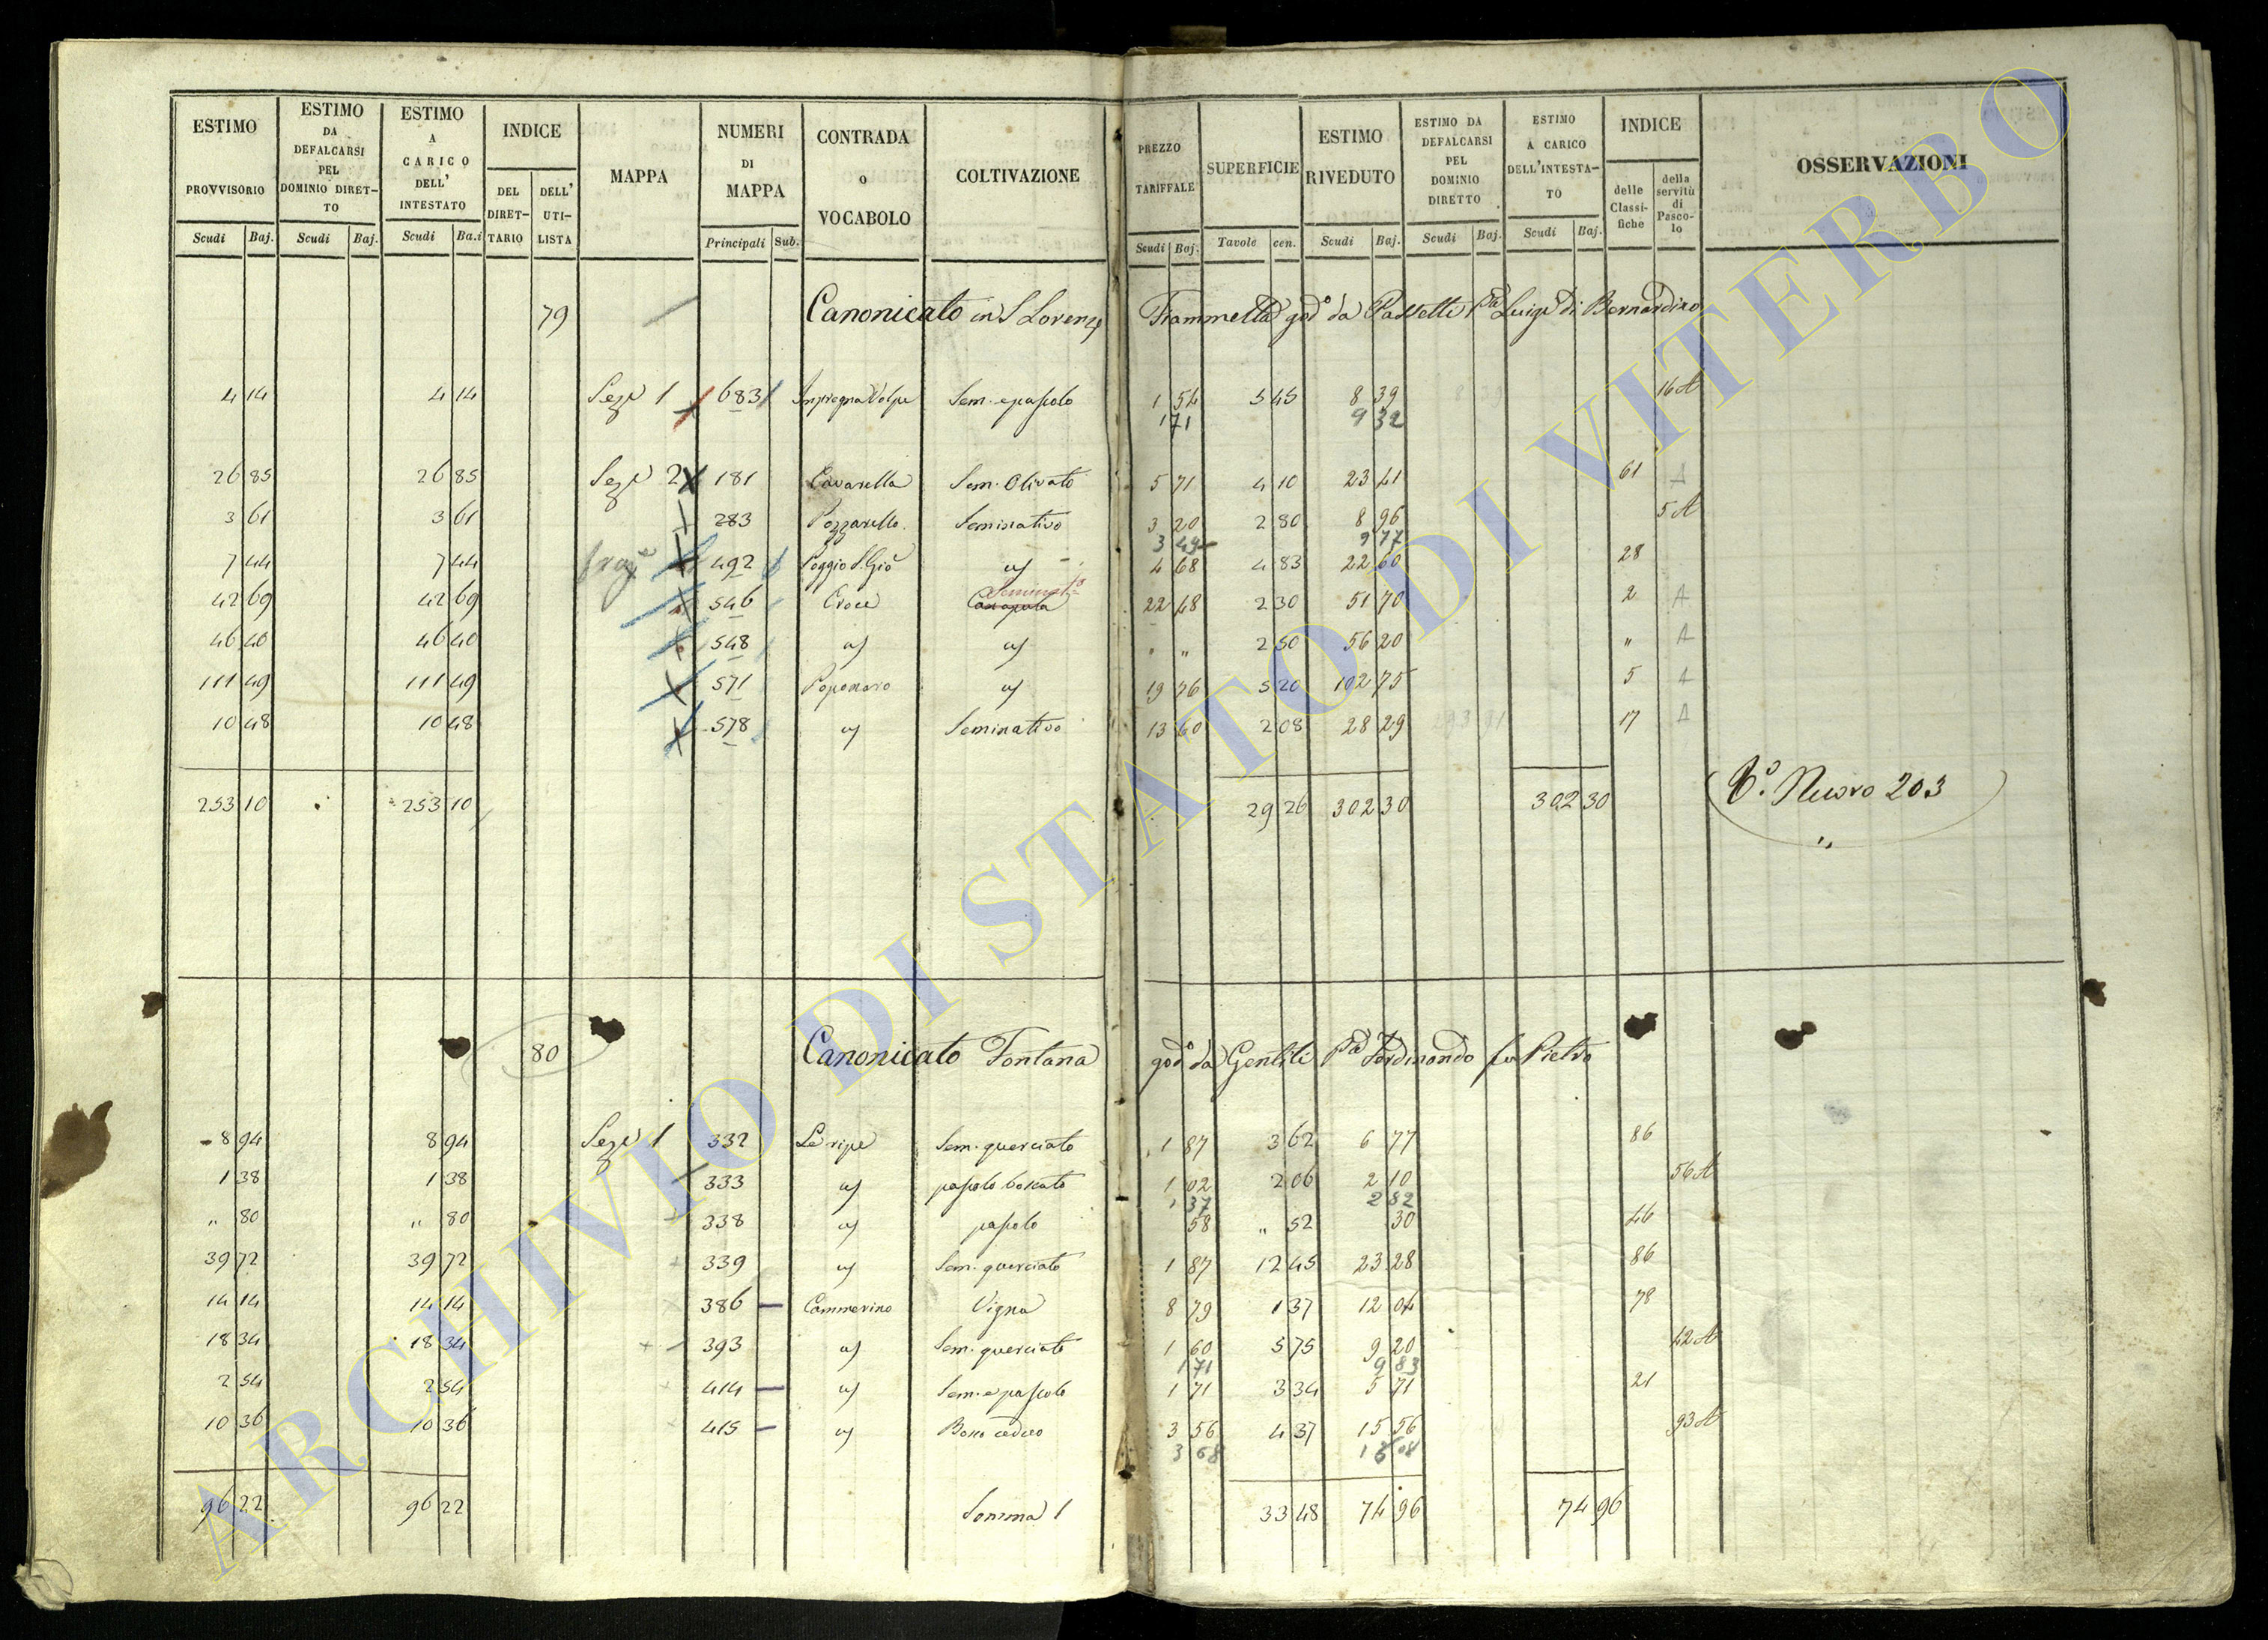 ESTIMO PROVVISORIO Scudi Baj. | ESTIMO DA DEFALCARSI PEL DOMINIO DIRET-TO Scudi Baj. | ESTIMO A CARICO DELL' INTESTATO Scudi Ba.i | INDICE DEL DIRET-TARIO DELL' UTI-LISTA | MAPPA | NUMERI DI MAPPA Principali Sub. | CONTRADA o VOCABOLO | COLTIVAZIONE | PREZZO TARIFFALE Scudi Baj. | SUPERFICIE Tavole cen. | ESTIMO RIVEDUTO Scudi Baj. | ESTIMO DA DEFALCARSI PEL DOMINIO DIRETTO Scudi Baj. | ESTIMO A CARICO DELL'INTESTA-TO Scudi Baj. | INDICE delle Classi-fiche della servitù di Pasco-lo | OSSERVAZIONI
79 Canonicato in S Lorenzo Fiammetta god.o da Passetti Luigi di Bernardino
4 14 | 4 14 | Sez.e 1 | 683 | Impregna Volpe | Sem. e pascolo | 1 54 | 5 45 | 8 39 | 16 A
1 71 | 9 32
26 85 | 26 85 | Sez.e 2 | 181 | Cavarella | Sem. Olivato | 5 71 | 4 10 | 23 41 | 61 | A
3 61 | 3 61 | 283 | Pozzarello | Seminativo | 3 20 | 2 80 | 8 96 | 5 A
3 49 | 9 77
7 44 | 7 44 | 492 | Poggio S. Gio | a) | 4 68 | 4 83 | 22 60 | 28
Seminat.o
42 69 | 42 69 | 546 | Croce | Canapula | 22 48 | 2 30 | 51 70 | 2 | A
46 40 | 46 40 | 548 | a) | a) | " " | 2 50 | 56 20 | " | A
111 49 | 111 49 | 571 | Poponaro | a) | 19 76 | 5 20 | 102 75 | 5 | A
10 48 | 10 48 | 578 | a) | Seminativo | 13 60 | 2 08 | 28 29 | 17 | A
253 10 | 253 10 | 29 26 | 302 30 | 302 30 | Nuovo 203
80 Canonicato Fontana god.o da Gentili Ferdinando fu Pietro
8 94 | 8 94 | Sez.e 1 | 332 | Le ripe | Sem. querciato | 1 87 | 3 62 | 6 77 | 86
1 38 | 1 38 | 333 | a) | pascolo boscato | 1 02 | 2 06 | 2 10 | 56 A
1 37 | 2 82
" 80 | " 80 | 338 | a) | pascolo | 58 | " 52 | 30 | 46
39 72 | 39 72 | 339 | a) | Sem. querciato | 1 87 | 12 45 | 23 28 | 86
14 14 | 14 14 | 386 | Cammerino | Vigna | 8 79 | 1 37 | 12 04 | 78
18 34 | 18 34 | 393 | a) | Sem. querciato | 1 60 | 5 75 | 9 20 | 42 A
1 71 | 9 83
2 54 | 2 54 | 414 | a) | Sem. e pascolo | 1 71 | 3 34 | 5 71 | 21
10 36 | 10 36 | 415 | a) | Bosco ceduo | 3 56 | 4 37 | 15 56 | 93 A
3 68
96 22 | 96 22 | Somma 1 | 33 48 | 74 96 | 74 96
ARCHIVIO DI STATO DI VITERBO